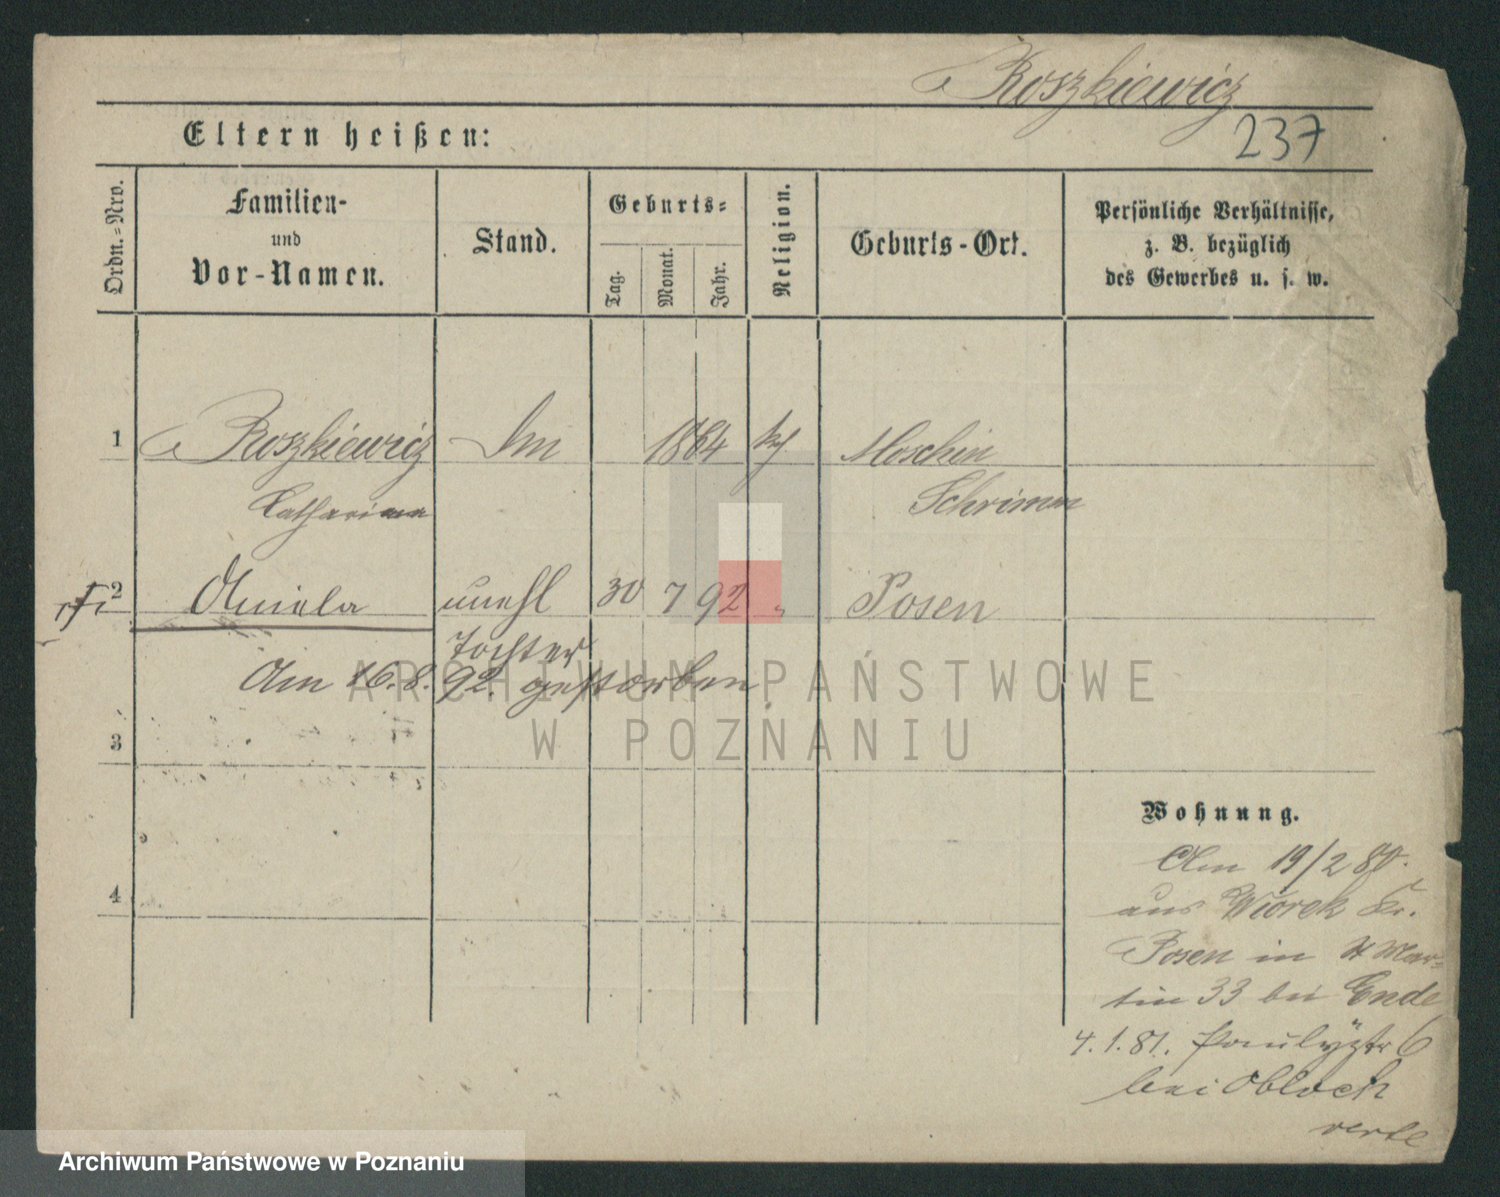 Roszkiewicz
237
Eltern heißen:
Ordn.-Nro.
Familien-
und
Vor-Namen.
Stand.
Geburts-
Tag.
Monat.
Jahr.
Religion.
Geburts-Ort.
Persönliche Verhältnisse,
z. B. bezüglich
des Gewerbes u. s. w.
1 Roszkiewicz 1864 Moschin
Catharina Schrimm
2 Aniela unehl 30 7 92 " Posen
Tochter
Am 16.8.92. gestorben
3
4
Wohnung.
Am 19/2 80.
aus Wiorek Kr.
Posen in St Mar-
tin 33 bei Ende
4.1.81. 6
bei Obloch
verte
ARCHIWUM PAŃSTWOWE
W POZNANIU
Archiwum Państwowe w Poznaniu